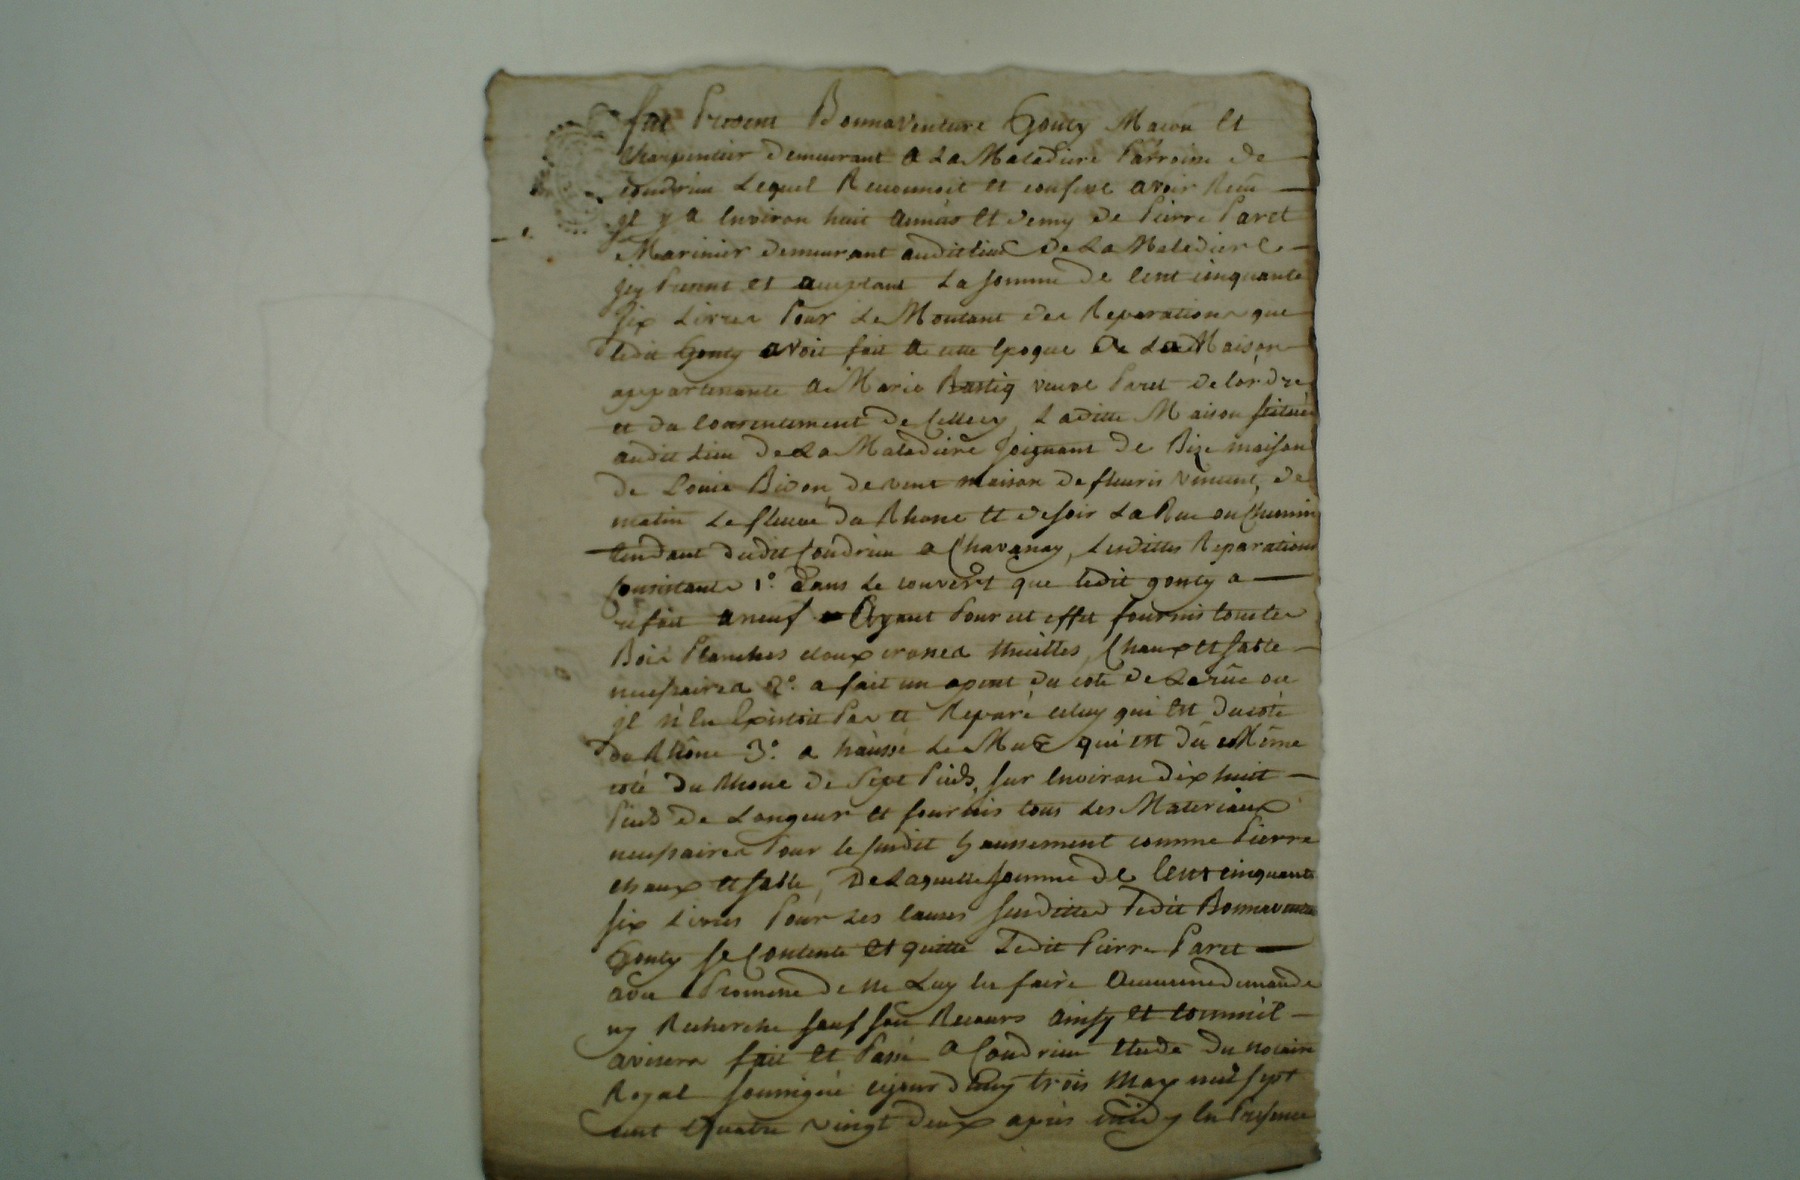 fut Present Bonnaventure Gouty Macon Et
Charpentier demeurant a La Maladiere Parroisse de
Condrieu Lequel Reconnoit et confesse avoir Recu
jl y a Environ huit années Et demy de Pierre Paret
Marinier demeurant audit lieu de La Maladiere
jcy Present et acceptant La somme de Cent cinquante
six Livres Pour Le Montant des Reparations que
ledit Gouty avoit fait a cette Epoque a La Maison
appartenante a Marie Bastiq veuve Paret de lordre
et du Consentement de Cellecy, Laditte Maison scituée
audit Lieu de La Maladiere Joignant de Bize maison
de Louis Bivon, de vent maison de fleuris Vincent, de
matin Le fleuve du Rhone Et de soir La Rue ou Chemin
tendant dudit Condrieu a Chavanay, Lesdittes Reparations
Consistante 1º. dans Le couvert que ledit gouty a
refait a neuf Ayant Pour cet effet fournis tous les
Bois Planches cloux thuilles, Chaux et sable
necessaires 2º. a fait un apent du coté de La rüe ou
jl n'En Existoit Pas et Reparé celuy qui Est du coté
du Rhône 3º. a haussé Le Mur qui est du Même
coté du Rhone de Sept Pieds, sur Environ dix huit
Pieds de Longeur et fournis tous Les Materiaux
necessaires Pour le susdit haussement comme Pierre
chaux et sable, De Laquelle somme de Cent cinquante
six Livres Pour Les causes susdittes ledit Bonnaventure
Gouty se Contente et quitte Ledit Pierre Paret
avec Promesse de ne Luy En faire Aucune demande
ny Recherche sauf son Recours ainsy Et comme il
avisera fait Et Passé a Condrieu Etude du notaire
Royal soussigné cejourd'huy trois May mil sept
cent Quatre vingt deux après midy En Presence